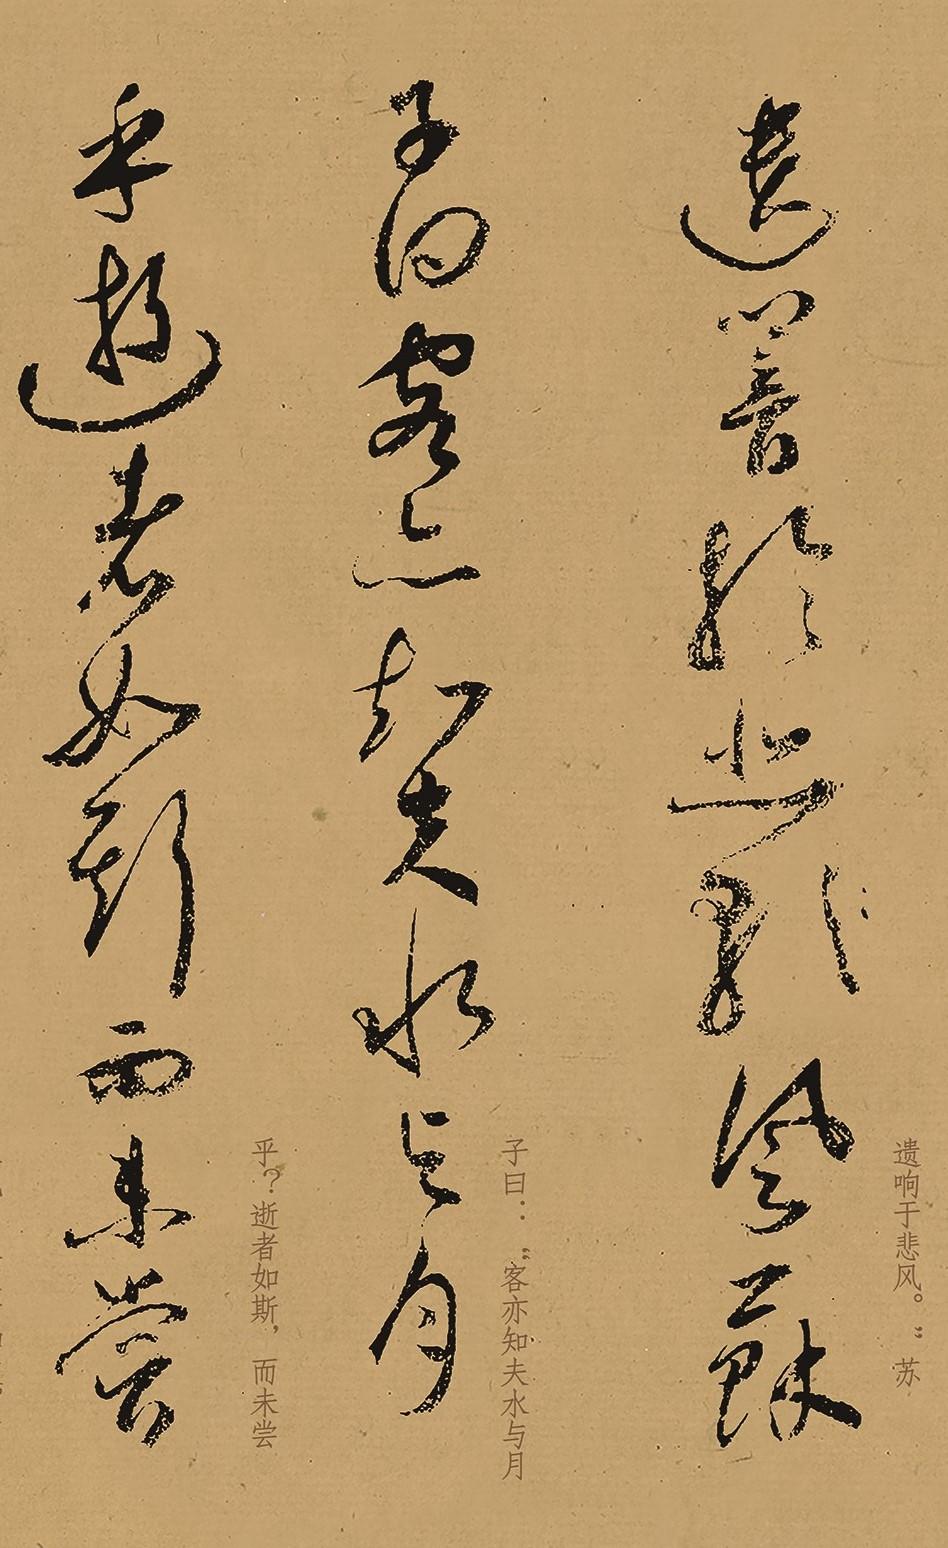 遗响于悲风。” 苏
遺響於悲風蘇
子曰：“客亦知夫水与月
子曰客亦知夫水与月
乎？逝者如斯，而未尝
乎逝者如斯而未嘗